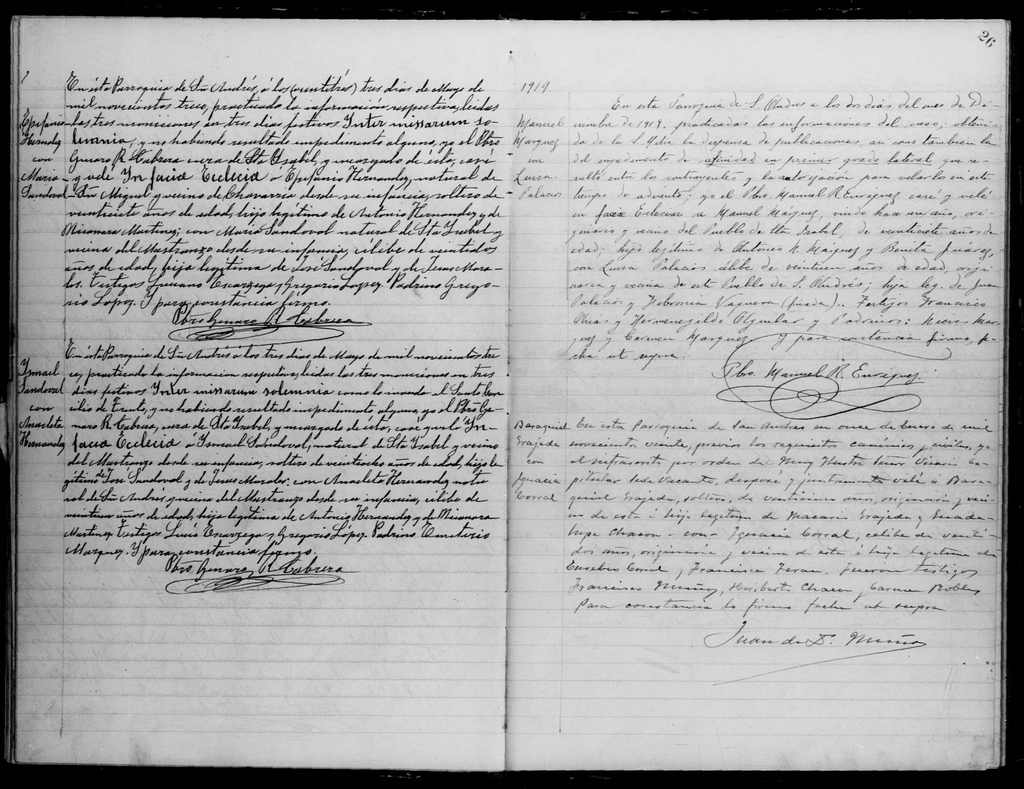 1
Epifanio
Hernandez
con
Maria
Sandoval
En ésta Parroquia de Sn Andrés, á los (veintitrés) tres dias de Mayo de
mil novecientos trece, practicada la información respectiva, leidas
las tres moniciones en tres dias festivos Inter missarum so-
lemnia, y no habiendo resultado impedimento alguno, yo el Pbro
Genaro R. Cabrera cura de Sta Ysabel, y encargado de ésta, casé
y velé In facia Eclecia á Epifanio Hernandez, natural de
Sn Miguel y vecino de Chavarria desde su infancia, soltero de
veintisiete años de edad, hijo legitimo de Antonio Hernandez y de
Nicanora Martinez; con Maria Sandoval natural de Sta Ysabel y
vecina del Mastranzo desde su infancia, célibe de veintidos
años de edad, hija legitima de José Sandoval y de Jesus Mora-
les. Testigos Luciano Escarzega y Gregorio Lopez Padrino Grego-
rio Lopez. Y para constancia firmo.
Pbro Genaro R. Cabrera
Ysmael
Sandoval
con
Anacleta
Hernandez
En ésta Parroquia de Sn Andrés á los tres dias de Mayo de mil novecientos tre-
ce, practicada la información respectiva, leidas las tres moniciones en tres
dias festivos Inter missarum solemnia como lo manda el Santo Con-
cilio de Trento, y no habiendo resultado impedimento alguno, yo el Pbro Ge-
naro R. Cabrera, cura de Sta Ysabel, y encargado de ésta, casé y velé In
facia Ecclecia á Ysmael Sandoval, natural de Sta Ysabel y vecino
del Mastranzo desde su infancia, soltero de veintiocho años de edad, hijo le-
gitimo de José Sandoval y de Jesus Morales: con Anacleta Hernandez natu-
ral de Sn Andrés y vecina del Mastranzo desde su infancia, célibe de
veintiun años de edad, hija legitima de Antonio Hernandez y de Nicanora
Martinez. Testigos Luis Escarzega y Gregorio Lópz. Padrino Emeterio
Marquez. Y para constancia firmo.
Pbro Genaro R Cabrera
26
1919
Manuel
Marquez
con
Luisa
Palacios
En esta Parroquia de S. Andres a los dos dias del mes de Di-
ciembre de 1919. practicadas las informaciones del caso, obteni-
da de la S. Mitra la dispensa de publicaciones, asi como tambien la
del impedimento de afinidad en primer grado lateral, que re-
sultó entre los contrayentes, y la autorización para velarlos en este
tiempo de adviento; yo el Pbro. Manuel R. Enriquez casé y velé
en facie Eclesiae a Manuel Marquez, viudo hace un año, ori-
ginario y vecino del Pueblo de Sta Isabel, de veintisiete años de
edad; hijo legítimo de Antonio M. Marquez y Benita Juárez,
con Luisa Palacios célibe de veintiun años de edad, origi-
naria y vecina de este Pueblo de S. Andrés; hija leg. de Juan
Palacios y Febronia Vaquera (finada). Testigos Francisco
Arias y Hermenegildo Aguilar y Padrinos: Mar-
quez y Carmen Marquez y para constancia firmo, fe-
cha ut supra.
Pbro. Manuel R. Enriquez.
Baraquiel
Grajeda
con
Ignacia
Corral
En esta Parroquia de San Andres en once de Enero de mil
novecientos veinte, previos los requisitos canónicos y civiles, yo
el infrascrito por orden del Muy Ilustre Señor Vicario Ca-
pitular Sede Vacante, desposé y juntamente velé á Bara-
quiel Grajeda, soltero, de veintitiun años, originario y veci-
no de este é hijo legitimo de Macario Grajeda y Guada-
lupe Chacon - con - Ignacia Corral, célibe de veinti-
dos años, originaria y vecina de este é hija legitima de
Eusebio Corral y Francisca Teran. Fueron testigos
Francisco Muñoz, Heriberto Chacon y Carmen Robles
Para constancia lo firmo fecha ut supra
Juan de D. Muñoz